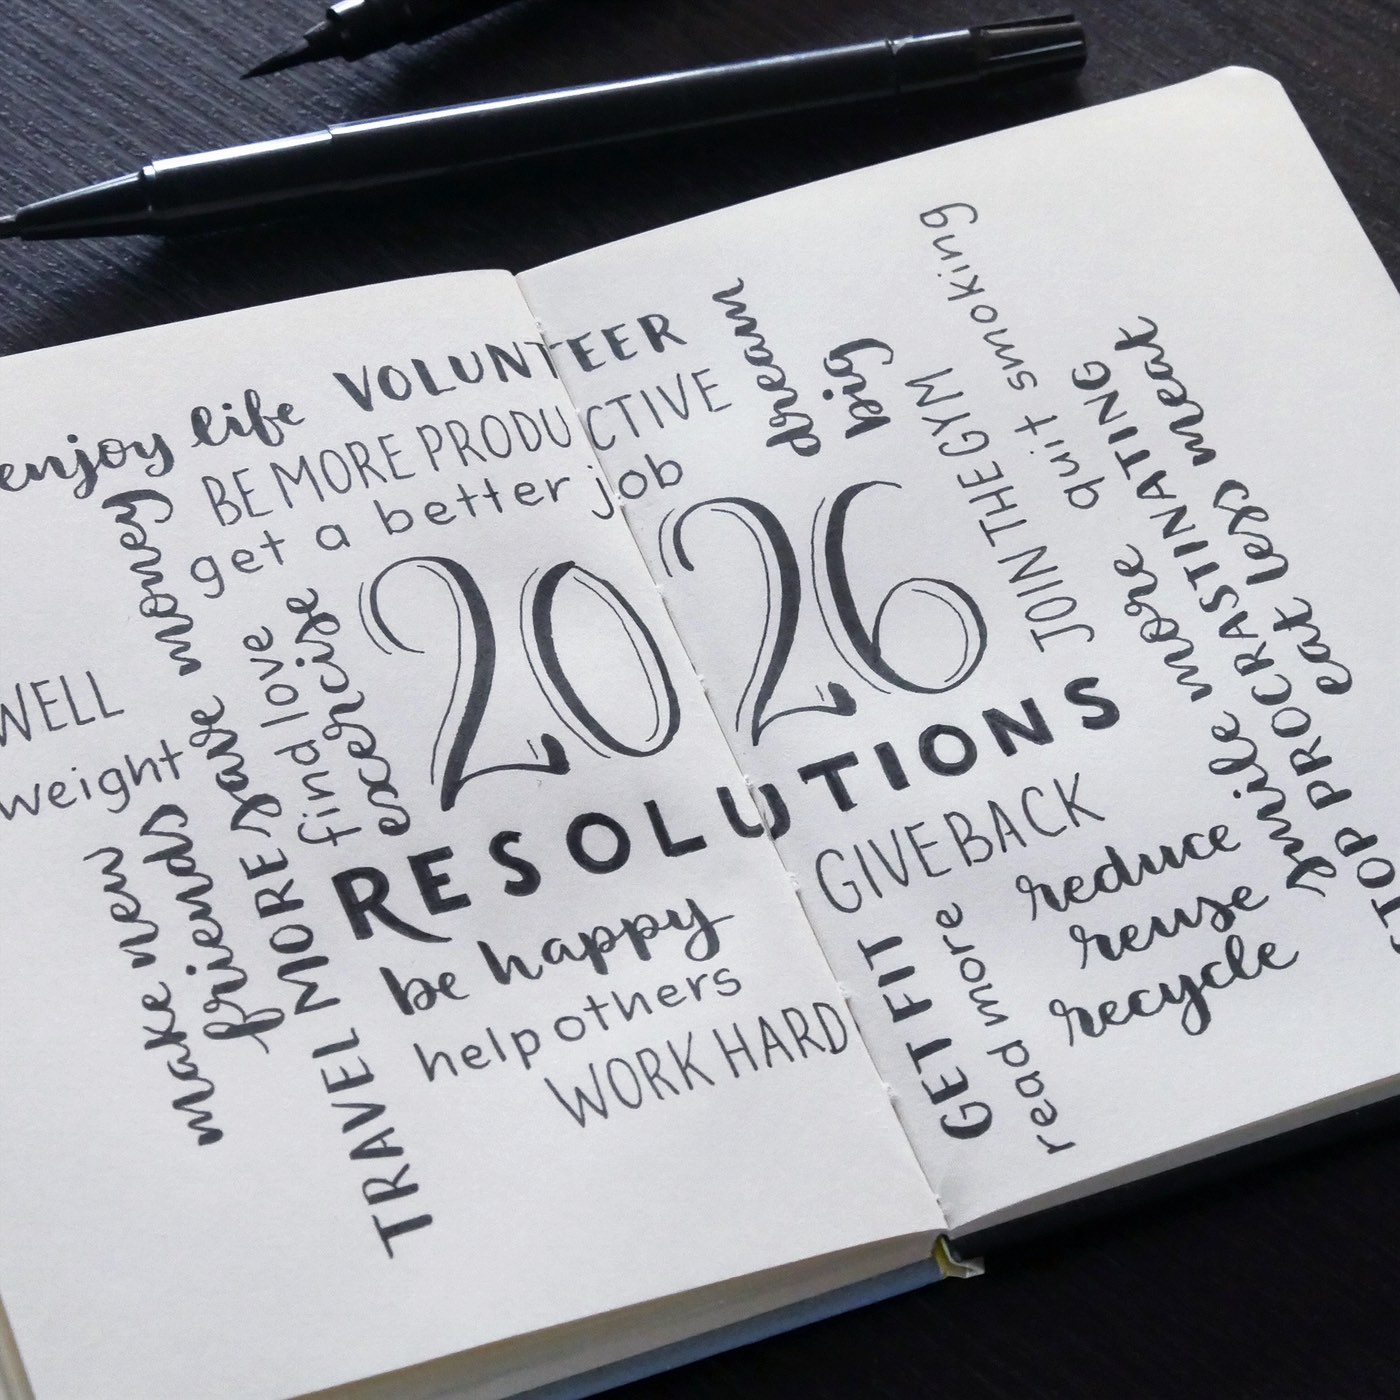 enjoy life
VOLUNTEER
BE MORE PRODUCTIVE
get a better job
dream
big
JOIN THE GYM
quit smoking
save money
find love
exercise
2026
RESOLUTIONS
WELL
weight
make new
friends
TRAVEL MORE
be happy
help others
WORK HARD
GIVE BACK
GET FIT
read more
reduce
reuse
recycle
smile more
STOP PROCRASTINATING
eat less meat